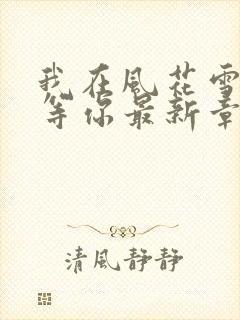 我在風花雪
等你最新章
清風靜靜